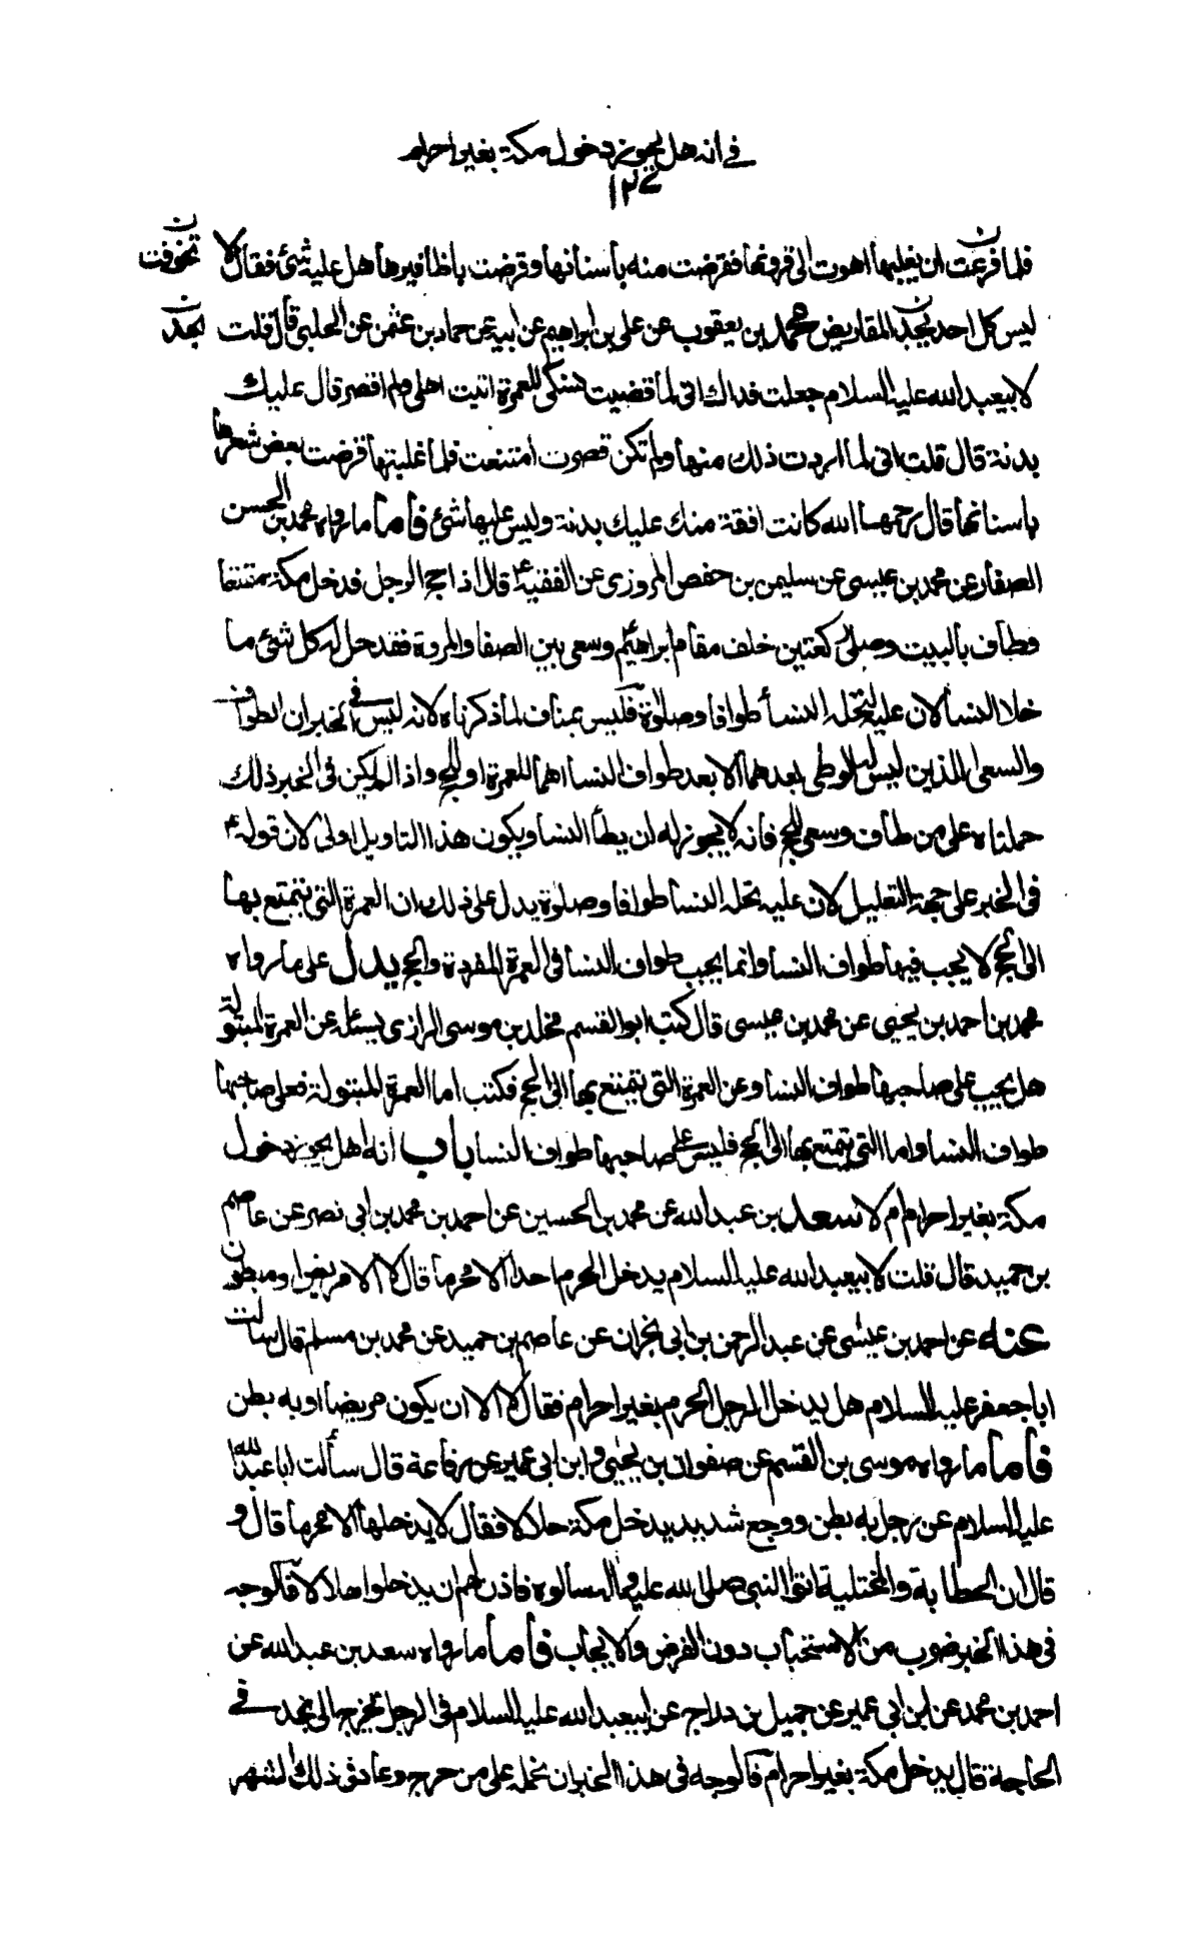 في انه هل يجوز دخول مكة بغير احرام
١٢٧
فلما فرعت ان يغلبها اهوت الى قرونها فقرضت منه باسنانها وقرضت باظافيرها هل عليه شئ فقال لا
تخوفت ن
ليس كل احد يجد المقاريض محمد بن يعقوب عن علي بن ابراهيم عن ابيه عن حماد بن عثمن عن الحلبي قال قلت
يجد ن
لابيعبد الله عليه السلام جعلت فداك اني لما قضيت نسكي للعمرة اتيت اهلي ولم اقصر قال عليك
بدنة قال قلت اني لما اردت ذلك منها ولم تكن قصرت امتنعت فلما غلبتها قرضت بعض شعرها
باسنانها قال رحمها الله كانت افقه منك عليك بدنة وليس عليها شئ فاما ما رواه محمد بن الحسن
الصفار عن محمد بن عيسى عن سليمن بن حفص المروزي عن الفقيه ع قال اذا حج الرجل فدخل مكة متمتعا
وطاف بالبيت وصلى ركعتين خلف مقام ابراهيم وسعى بين الصفا والمروة فقد حل له كل شئ ما
خلا النسا لان عليه لتحله النسا طوافا وصلوة فليس بمناف لما ذكرناه لانه ليس في الخبر ان الطواف
والسعي الذين ليس له الوطي بعدهما الا بعد طواف النسا اهما للعمرة او للحج واذا لم يكن في الخبر ذلك
حملناه على من طاف وسعى للحج فانه لا يجوز له ان يطأ النسا ويكون هذا التاويل اولى لان قوله ع
في الخبر على جهة التعليل لان عليه تحله النسا طوافا وصلوة يدل على ذلك ان العمرة التي يتمتع بها
الى الحج لا يجب فيها طواف النسا وانما يجب طواف النسا في العمرة المفردة والحج يدل على ما رواه
محمد بن احمد بن يحيى عن محمد بن عيسى قال كتب ابو القسم مخلد بن موسى الرازي يسئله عن العمرة المبتولة
هل يجب على صاحبها طواف النسا وعن العمرة التي يتمتع بها الى الحج فكتب اما العمرة المبتولة فعلى صاحبها
طواف النسا واما التي يتمتع بها الى الحج فليس على صاحبها طواف النسا باب انه هل يجوز دخول
مكة بغير احرام ام لا سعد بن عبد الله عن محمد بن الحسين عن احمد بن محمد بن ابي نصر عن عاصم
بن حميد قال قلت لابيعبد الله عليه السلام يدخل الحرم احد الا محرما قال لا الا مريض او مبطون
عنه عن احمد بن عيسى عن عبد الرحمن بن ابي نجران عن عاصم بن حميد عن محمد بن مسلم قال سالت
ابا جعفر عليه السلام هل يدخل الرجل الحرم بغير احرام فقال لا الا ان يكون مريضا او به بطن
فاما ما رواه موسى بن القسم عن صفوان بن يحيى وابن ابي عمير عن رفاعة قال سألت ابا عبد الله
عليه السلام عن رجل به بطن ووجع شديد يدخل مكة حلالا فقال لا يدخلها الا محرما قال و
قال ان الحطابة والمختلية اتوا النبي صلى الله عليه واله فسألوه فاذن لهم ان يدخلوا حلالا فالوجه
في هذا الخبر ضرب من الاستحباب دون الفرض والايجاب فاما ما رواه سعد بن عبد الله عن
احمد بن محمد عن ابن ابي عمير عن جميل بن دراج عن ابيعبد الله عليه السلام في الرجل يخرج الى نجد في
الحاجة قال يدخل مكة بغير احرام فالوجه في هذا الخبر ان نحمله على من خرج وعاد في ذلك الشهر